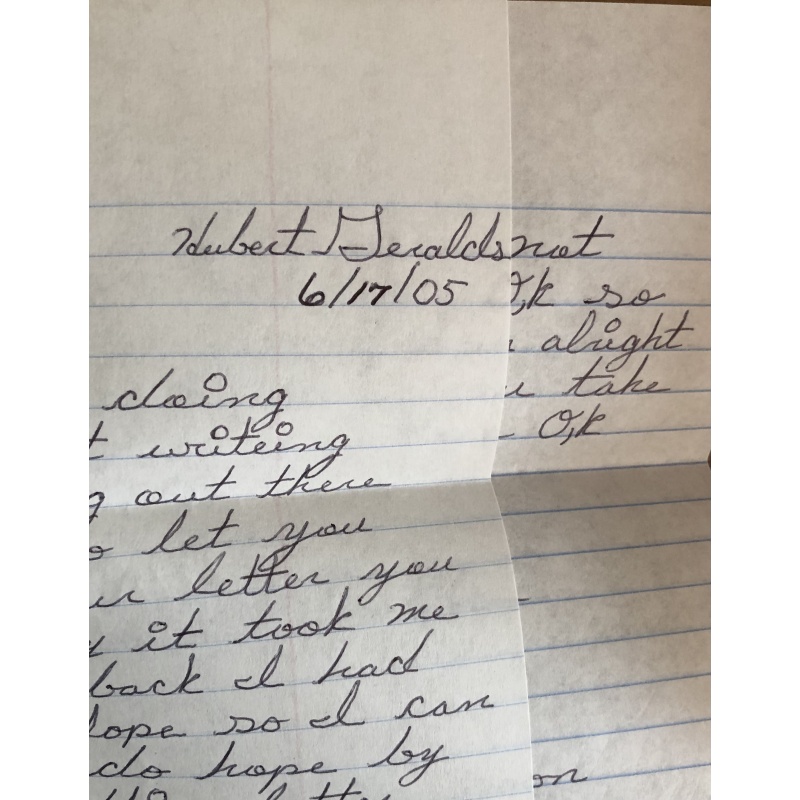 Hubert Geralds
6/17/05
doing
writeing
out there
let you
letter you
it took me
back I had
lope so I can
do hope by
not
O,k so
alright
take
O,k
on